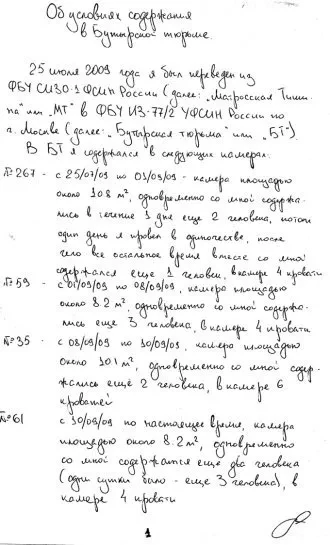 Об условиях содержания
в Бутырской тюрьме.
25 июля 2009 года я был переведен из
ФБУ СИЗО-1 ФСИН России (далее: „Матросская Тиши-
на" или „МТ") в ФБУ ИЗ-77/2 УФСИН России по
г. Москве (далее: „Бутырская тюрьма" или „БТ").
В БТ я содержался в следующих камерах:
№267 - с 25/07/09 по 01/09/09 - камера площадью
около 10.8 м², одновременно со мной содержа-
лись в течение 1 дня еще 2 человека, потом
один день я провел в одиночестве, после
чего все остальное время вместе со мной
содержался еще 1 человек, в камере 4 кровати
№59 - с 01/09/09 по 08/09/09, камера площадью
около 8.2 м², одновременно со мной содержа-
лись еще 3 человека, в камере 4 кровати
№35 - с 08/09/09 по 10/09/09, камера площадью
около 10.1 м², одновременно со мной содер-
жались еще 2 человека, в камере 6
кроватей
№61 с 10/09/09 по настоящее время, камера
площадью около 8.2 м², одновременно
со мной содержатся еще два человека
(одни сутки было - еще 3 человека), в
камере 4 кровати
1